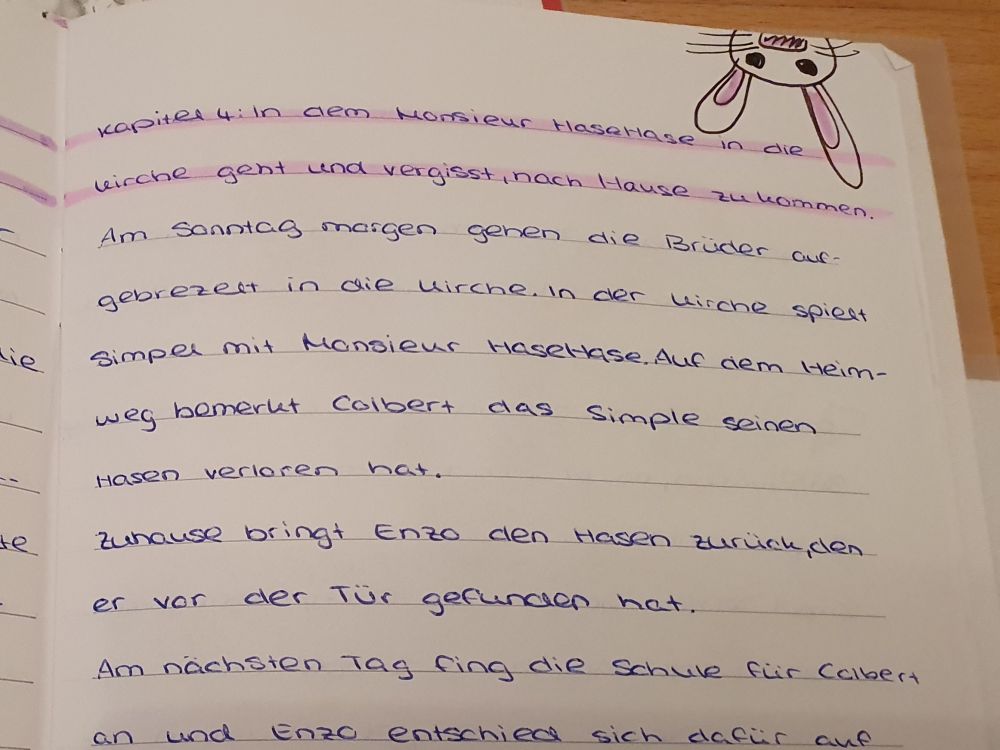 Kapitel 4: In dem Monsieur HaseHase in die
Kirche geht und vergisst, nach Hause zu kommen.
Am Sonntag morgen gehen die Brüder auf-
gebrezelt in die Kirche. In der Kirche spielt
Simpel mit Monsieur HaseHase. Auf dem Heim-
weg bemerkt Colbert das Simple seinen
Hasen verloren hat.
Zuhause bringt Enzo den Hasen zurück, den
er vor der Tür gefunden hat.
Am nächsten Tag fing die Schule für Colbert
an und Enzo entschied sich dafür auf